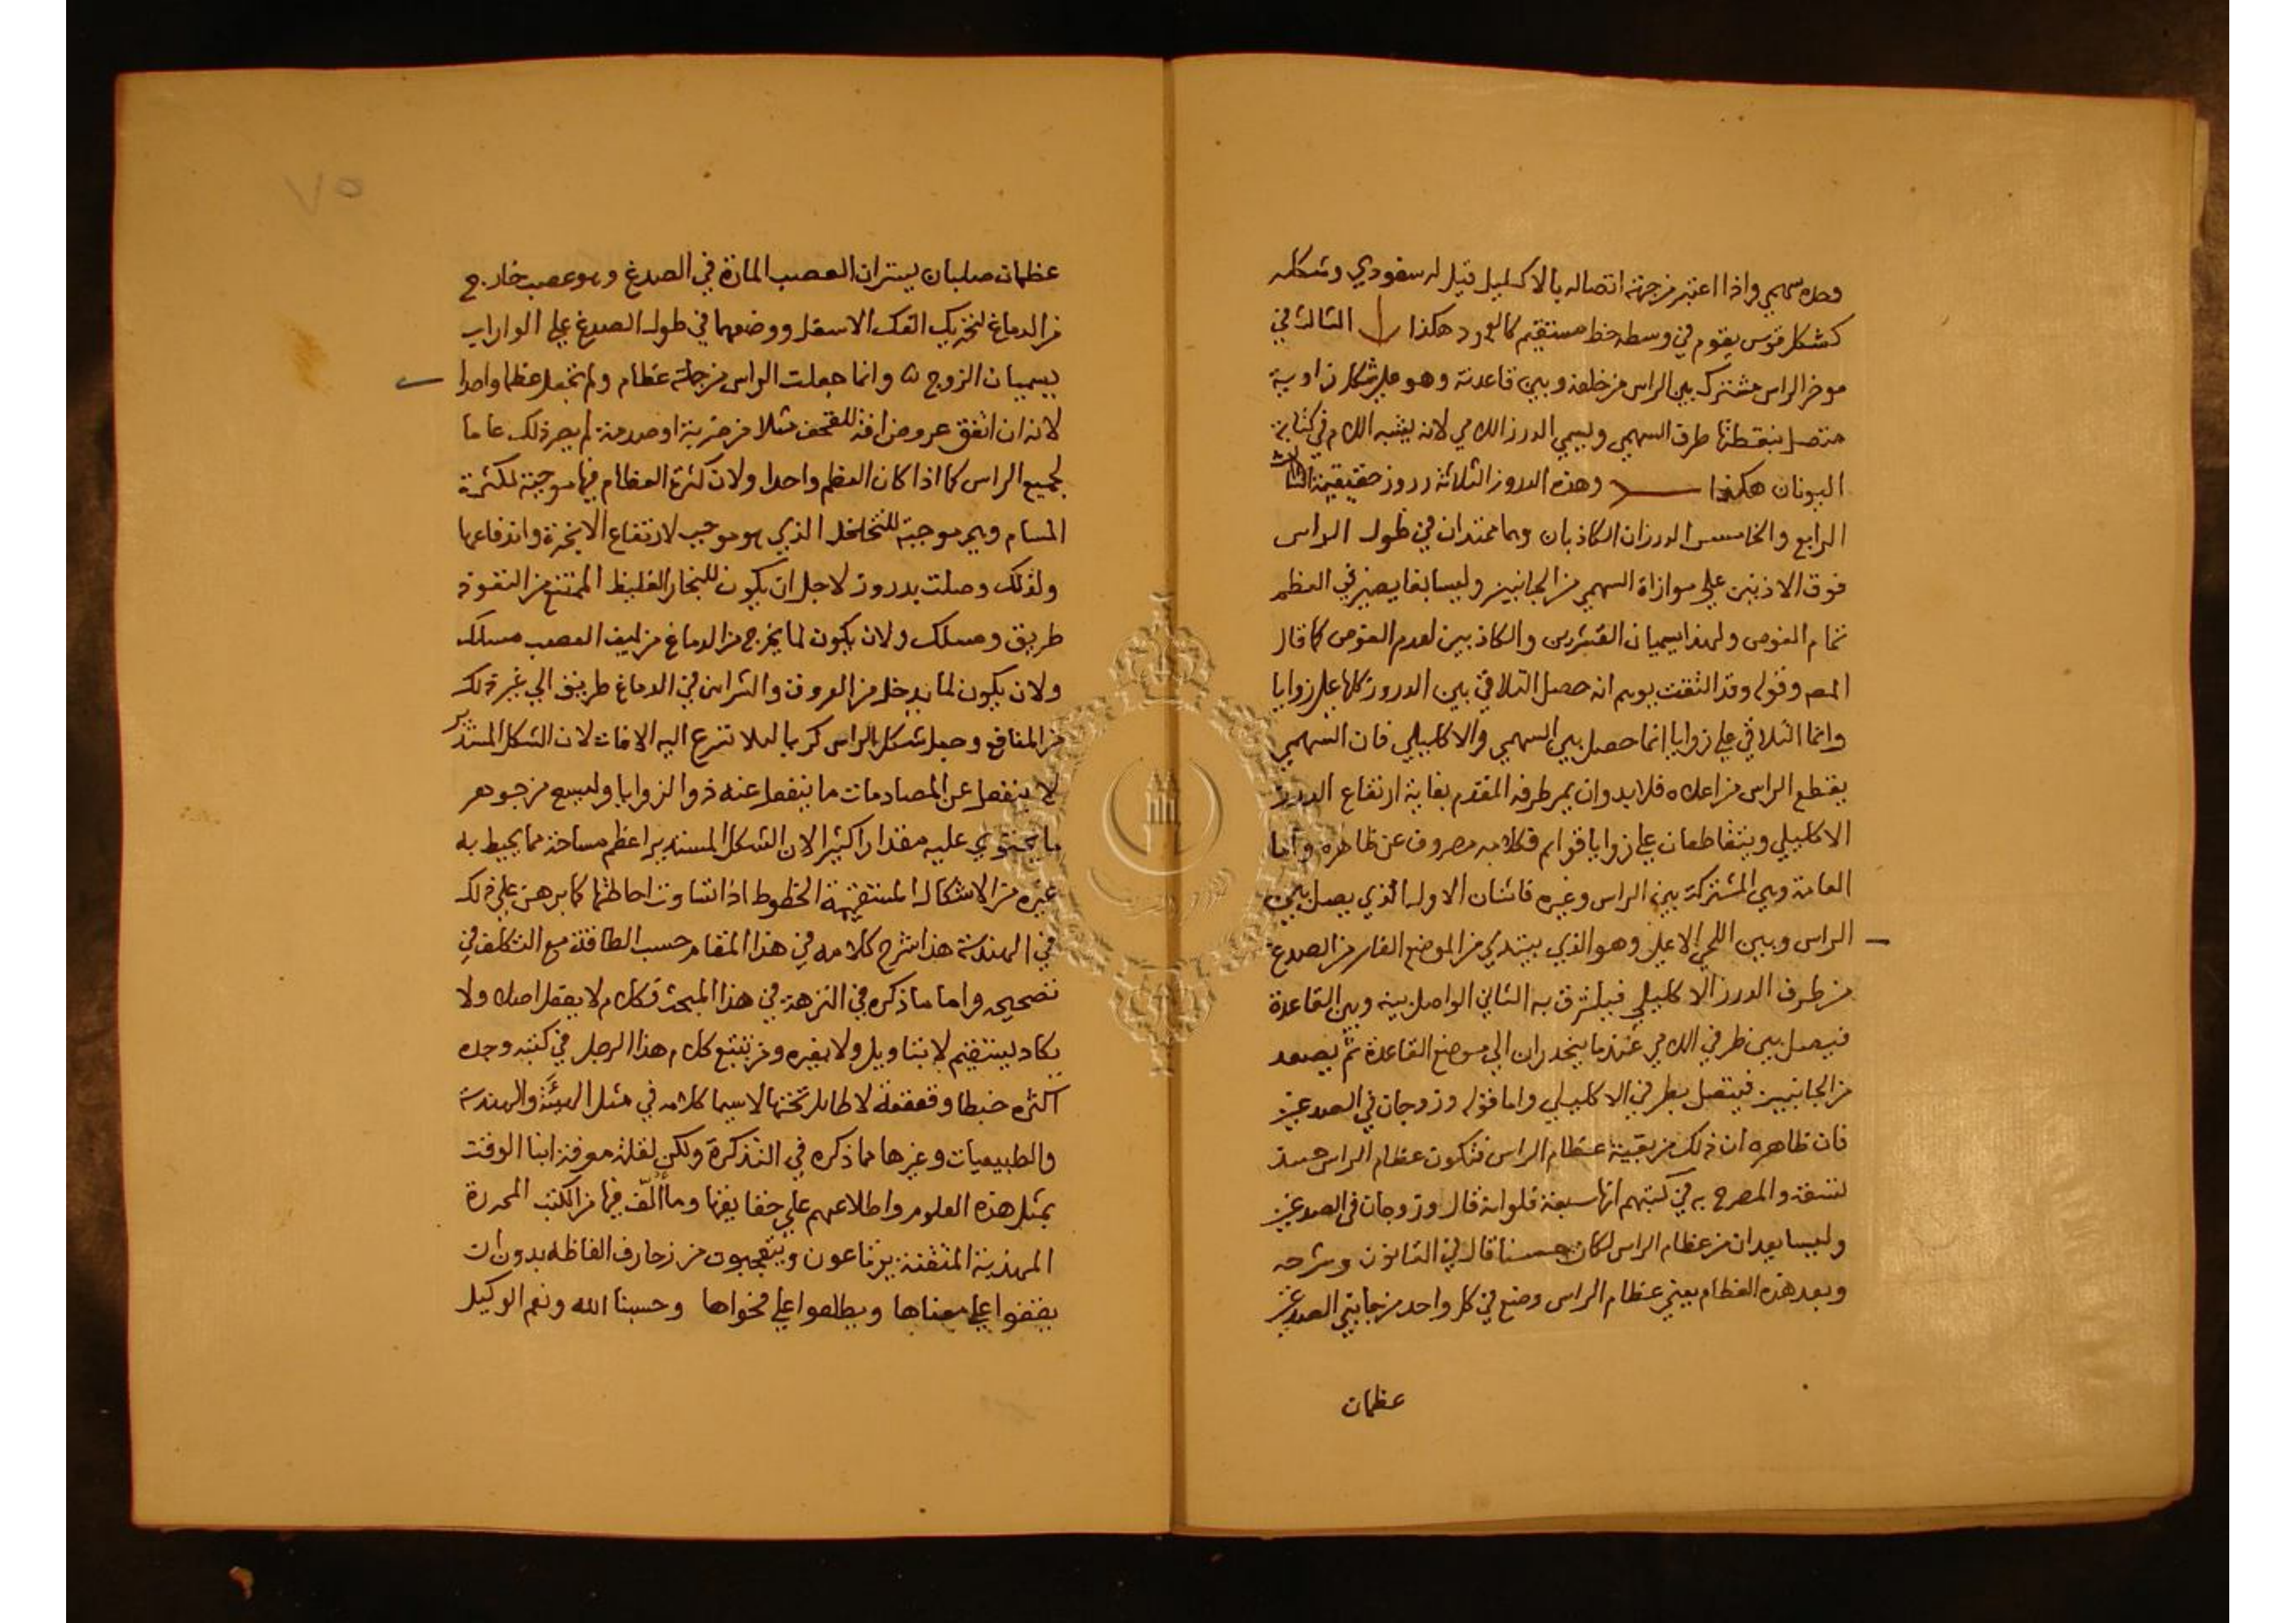 وحده سهمي واذا اعتبر من جهة اتصاله بالاكليل قيل له سفودي وشكله
كشكل قوس يقوم في وسطه خط مستقيم كالعمود هكذا الثالث في
موخر الراس مشترك بين الراس من خلفه وبين قاعدته وهو على شكل زاوية
متصل بنقطتها طرف السهمي ويسمي الدرز اللامي لانه يشبه اللام في كتابة
اليونان هكذا وهذه الدروز الثلاثة دروز حقيقية
الرابع والخامس الدرزان الكاذبان وهما ممتدان في طول الراس
فوق الاذنين علي موازاة السهمي من الجانبين وليسا بغايصين في العظم
تمام الغوص ولهذا يسميان القشريين والكاذبين لعدم الغوص كما قال
المصه وقوله وقد التقت يوهم انه حصل التلاقي بين الدروز كلها على زوايا
وانما التلاقي علي زوايا انما حصل بين السهمي والاكليلي فان السهمي
يقطع الراس من اعلاه فلا بد وان يمر طرفه المقدم بغاية ارتفاع الدرز
الاكليلي ويتقاطعان علي زوايا قوايم فكلامه مصروف عن ظاهره واما
العامة وهي المشتركة بين الراس وغيره فاثنان الاول الذي يصل بين
الراس وبين اللحي الاعلى وهو الذي يبتدي من الموضع الغاير من الصدغ
من طرف الدرز الاكليلي فيلتزق به الثاني الواصل بينه وبين القاعدة
فيصل بين طرفي اللامي عندما ينحدران الي موضع القاعدة ثم يصعد
من الجانبين فيتصل بطرفي الاكليلي واما قوله وزوجان في الصدغين
فان ظاهره ان ذلك من بقية عظام الراس فتكون عظام الراس حينـ
لتسعة والمصرح به في كتبهم انها سبعة فلو انه قال وزوجان في الصدغين
وليسا يعدان من عظام الراس لكان حسنا قال في القانون وشرحه
وبعد هذه العظام يعني عظام الراس وضع في كل واحد من جانبي الصدغين
عظمان
عظمان صلبان يستران العصب المارة في الصدغ وهو عصب خارج
من الدماغ لتحريك الفك الاسفل ووضعهما في طول الصدغ علي الواراب
يسميان الزوج ه وانما جعلت الراس من جملة عظام ولم تجعل عظما واحدا
لانه ان اتفق عروض افة للقحف مثلا من ضربة او صدمة لم يصر ذلك عاما
لجميع الراس كما اذا كان العظم واحدا ولان كثرة العظام فيها موجبة لكثرة
المسام وهي موجبة للتخلخل الذي هو موجب لارتفاع الابخرة واندفاعها
ولذلك وصلت بدروز لاجل ان يكون للبخار الغليظ الممتنع من النفوذ
طريق ومسلك ولان يكون لما يخرج من الدماغ من ليف العصب مسلك
ولان يكون لما يدخل من العروق والشرايين في الدماغ طريق الي غير ذلك
من المنافع وجعل شكل الراس كريا ليلا تسرع اليه الافات لان الشكل المستدير
لا ينفعل عن المصادمات ما ينفعل عنه ذو الزوايا وليسع من جوهر
ما يحتوي عليه مقدارا كثيرا لان الشكل المستدير اعظم مساحة مما يحيط به
غيره من الاشكال المستقيمة الخطوط اذا تساوت احاطتها كما برهن علي ذلك
في الهندسة هذا شرح كلامه في هذا المقام حسب الطاقة مع التكلف في
تصحيحه واما ما ذكره في النزهة في هذا المبحث فكلام لا يعقل اصلا ولا
يكاد يستقيم لا بتاويل ولا بغيره ومن تتبع كلام هذا الرجل في كتبه وجده
اكثره خبطا وقعقعة لا طايل تحتها لا سيما كلامه في مثل الهيئة والهندسة
والطبيعيات وغيرها مما ذكره في التذكرة ولكن لقلة معرفة ابنا الوقت
بمثل هذه العلوم واطلاعهم علي حقايقها وما الّف فيها من الكتب المحررة
المهذبة المتقنة يرتاعون ويتعجبون من زخارف الفاظه بدون ان
يقفوا علي معناها ويطلعوا علي فحواها وحسبنا الله ونعم الوكيل